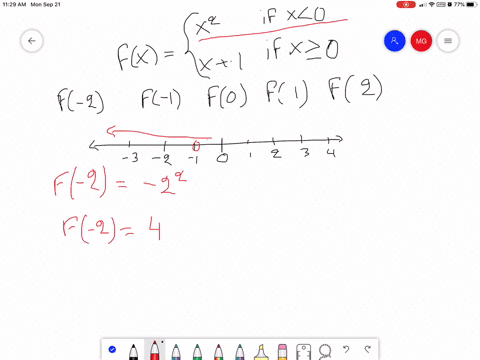 11:29 AM Mon Sep 21
77%
MG
F(x) = { x² if x<0
x+1 if x≥0
F(-2) F(-1) F(0) F(1) F(2)
-3 -2 -1 0 1 2 3 4
F(-2) = -2²
F(-2) = 4